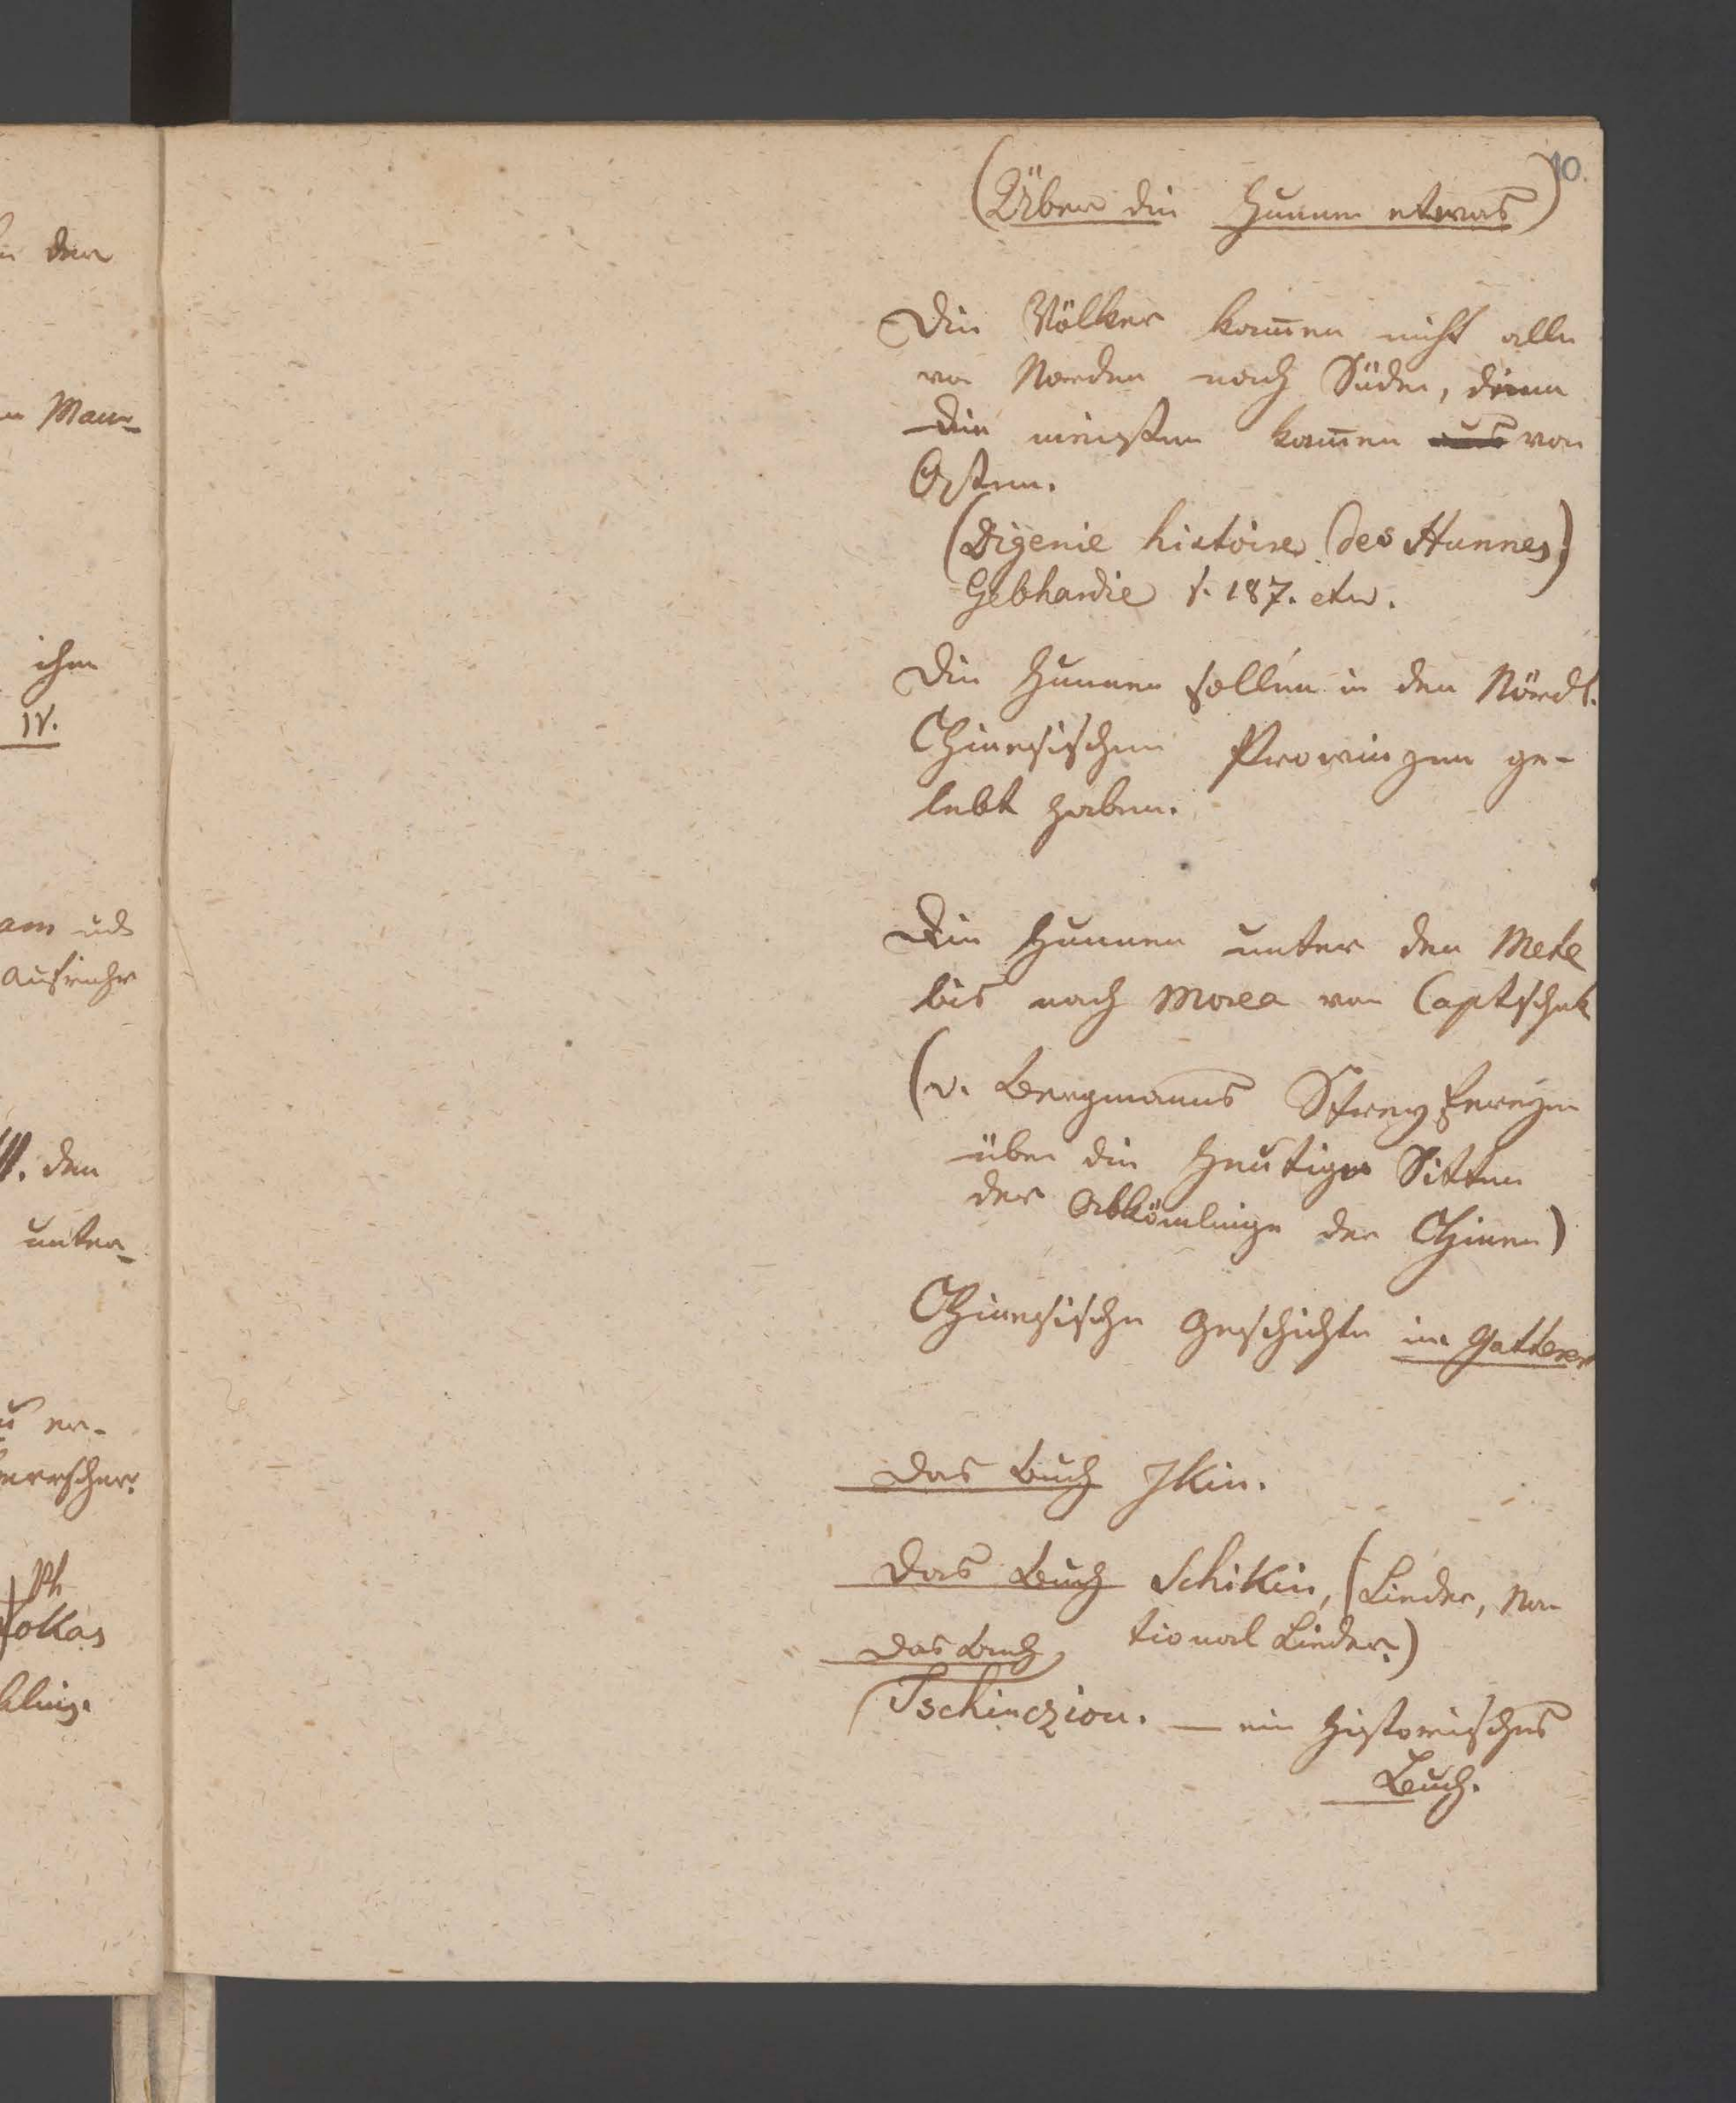 10.
(Über die Hunnen etwas)
Die Völker kom̅en nicht alle
von Norden nach Süden, denn
die meisten kam̅en aus von
Osten.
(Digenie histoire des Hunnes)
Gebhardie S. 187. etw.
Die Hunnen sollen in den Nördl.
Chinesischen Provinzen ge-
lebt haben.
Die Hunnen unter den Mete
bis nach Morea von Captschak
(v. Bergmanns Streyfereyen
über die heutigen Sitten
der Abkömlinge der Chinen)
Chinesische Geschichte im Gatterer
Das Buch Ikin.
Das Buch Schikin, (Lieder, Na-
tional Lieder.)
Das Buch
Tschinczion. — ein historisches
Buch.
den
Man-
ihm
IV.
am und
Aufruhr
den
unter-
er-
Ph